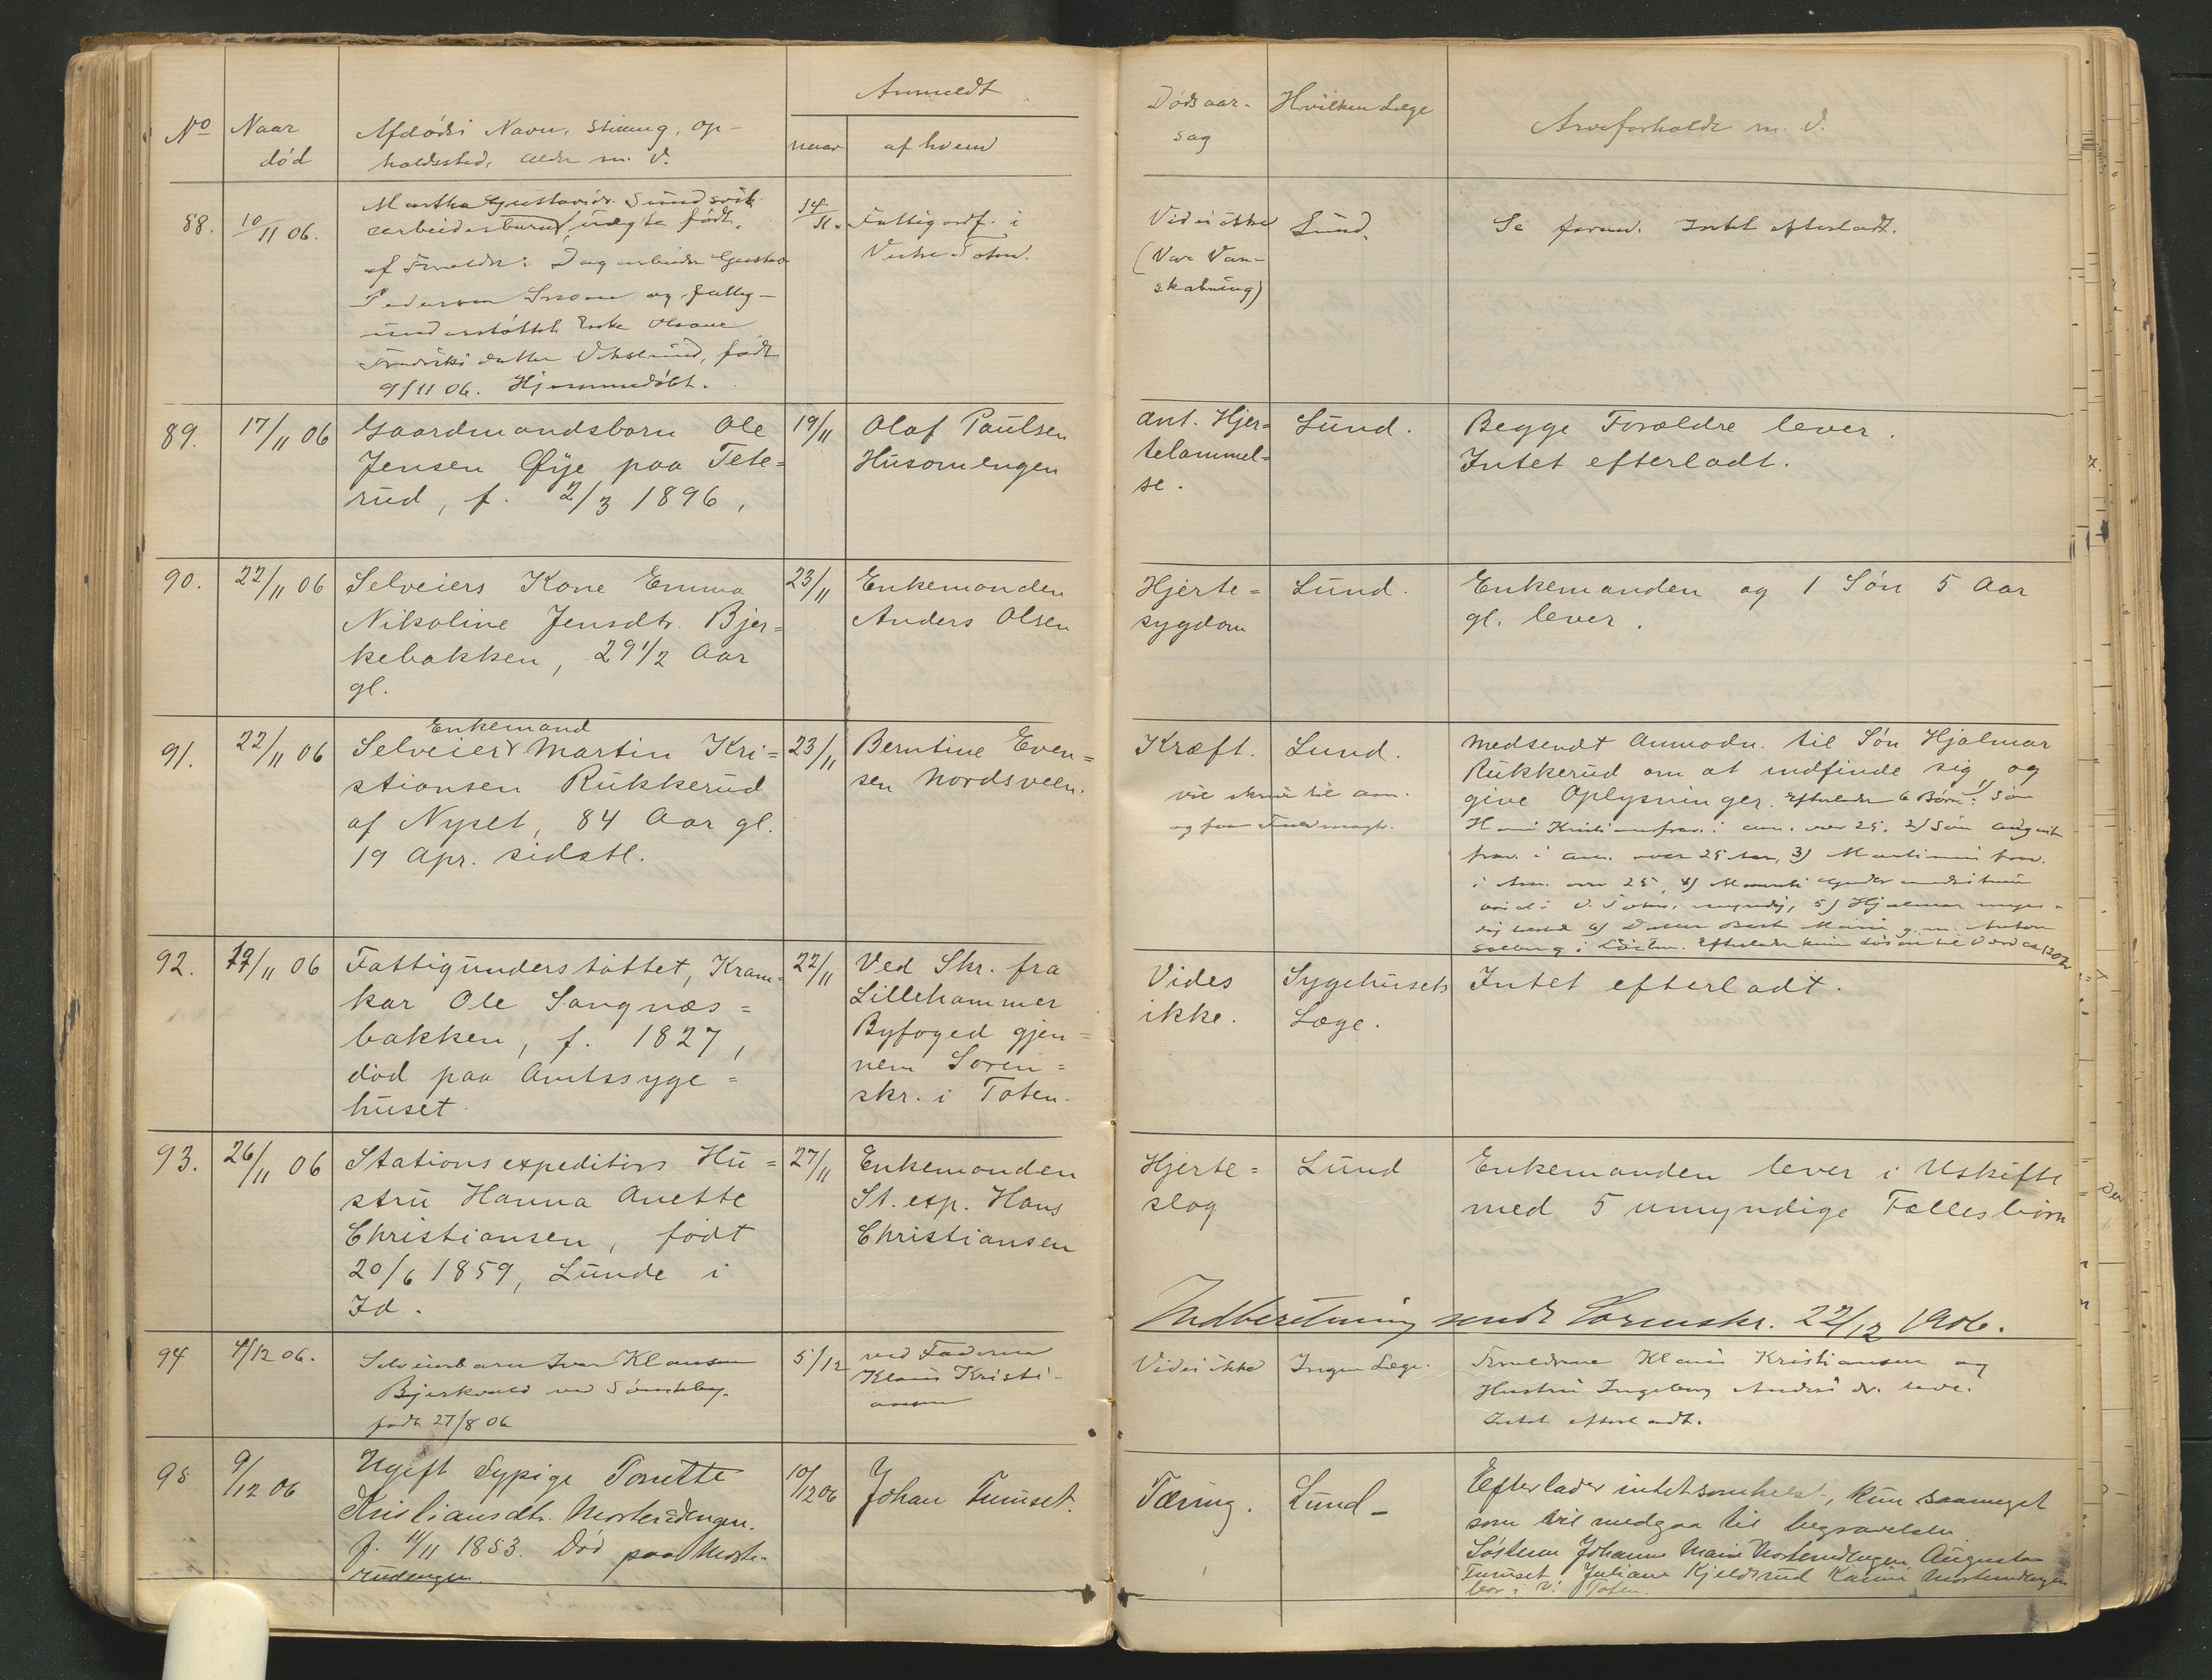 Anmeldt
No
Naar
død
Afdødes Navn, Stilling, Op-
holdssted, alder m. V.
naar
af hvem
Dødsaar-
sag
Hvilken Læge
Arveforholde m. V.
88.
10/11 06.
Martha Gustavsdr. Sundsvik
arbeidesbarn, uægte født,
af Forældre: Dagarbeider Gustav
Pedersen og fattig-
understøttet Enke
datter, født
9/11 06. Hjemmedøbt.
14/11.
Fattigordf. i
Vestre Toten.
Vides ikke
(Vare Van-
skabning)
Lund.
Se foran. Intet efterladt.
89.
17/11 06
Gaardmandsbarn Ole
Jensen Øye paa Tete=
rud, f. 2/3 1896,
19/11
Olaf Paulsen
Husomengen
Ant. Hjer=
telammel=
se.
Lund.
Begge Forældre lever.
Intet efterladt.
90.
22/11 06
Selveiers Kone Emma
Nikoline Jensdtr. Bjer=
kebakken, 29 1/2 Aar
gl.
23/11
Enkemanden
Anders Olsen
Hjerte=
sygdom
Lund.
Enkemanden og 1 Søn 5 Aar
gl. lever.
91.
22/11 06
Enkemand
Selveier Martin Kri=
stiansen Rukkerud
af Nyset, 84 Aar gl.
19 Apr. sidstl.
23/11
Berntine Even=
sen Nordsveen.
Kræft.
Lund.
vil skrive til am.
og faa Fuldmagt.
Medsendt Anmodn. til Søn Hjalmar
Rukkerud om at indfinde sig og
give Oplysninger. Efterlader 6 Børn: 1) Søn
Kristian i am. over 25. 2) Søn August
i am. over 25 Aar, 3) Martinus
i Am. over 25, 4)
V. Toten, myndig, 5) Hjalmar myn-
dig 6) Datter Marie g. m. Anton
i Efterlader kun
92.
17/11 06
Fattigunderstøttet, Kram=
kar Ole Sangnæs=
bakken, f. 1827,
død paa Amtssyge=
huset.
22/11
Ved Skr. fra
Lillehammer
Byfoged gjen=
nem Soren=
skr. i Toten.
Vides
ikke.
Sygehusets
Læge.
Intet efterladt.
93.
26/11 06
Stationsexpeditørs Hu=
stru Hanna Anette
Christiansen, født
20/6 1859, Lunde i
Id.
27/11
Enkemanden
St. exp. Hans
Christiansen
Hjerte=
slag
Lund
Enkemanden lever i Uskifte
med 5 umyndige Fællesbørn
Indberetning sendt Sorenskr. 22/12 1906.
94
4/12 06.
Selveierbarn Ivar Klausen
Bjerkvold ved
født 27/8 06
5/12
ved Faderen
Klaus Kristi-
ansen
Vides ikke
Ingen Læge.
Forældrene Klaus Kristiansen og
Hustru Ingeborg Andersdr. leve.
Intet efterladt.
95
9/12 06
Ugift Sypige Tonette
Kristiansdtr. Morterudengen.
f. 11/11 1853. Død paa Morte-
rudengen.
10/12 06
Johan Tumset.
Tæring.
Lund-
Efterlader intetsomhelst, kun saameget
som vil medgaa til begravelsen.
Søstrene Johanne Marie Morterudengen Augusta
Tumset Juliane Kjeldsrud Karine Morterudengen
bor i V. Toten.